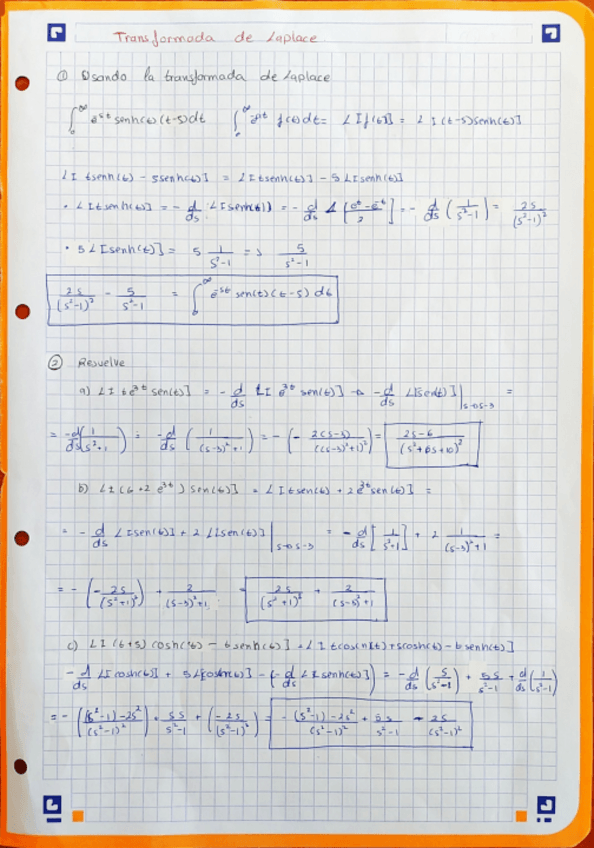 Transformada de Laplace
① Usando la transformada de Laplace
∫₀^∞ e^st senh(t) (t-5)dt ∫₀^∞ e^st f(t)dt = L[f(t)] = L[(t-5)senh(t)]
L[tsenh(t) - 5senh(t)] = L[tsenh(t)] - 5L[senh(t)]
• L[tsenh(t)] = - d/ds L[senh(t)] = - d/ds L[(e^t - e^-t)/2] = - d/ds (1/(s²-1)) = 2s/(s²-1)²
• 5L[senh(t)] = 5 1/(s²-1) => 5/(s²-1)
2s/(s²-1)² - 5/(s²-1) = ∫₀^∞ e^st sen(t) (t-5) dt
② Resuelve
a) L[t e^3t sen(t)] = - d/ds L[e^3t sen(t)] → - d/ds L[sen(t)] |s→s-3 =
= -d/ds (1/(s²+1)) = -d/ds (1/((s-3)²+1)) = - (- 2(s-3)/((s-3)²+1)²) = (2s-6)/(s²+6s+10)²
b) L[(t+2 e^3t) sen(t)] = L[tsen(t) + 2e^3t sen(t)] =
= - d/ds L[sen(t)] + 2 L[sen(t)] |s→s-3 = - d/ds [1/(s²+1)] + 2 1/((s-3)²+1) =
= - (- 2s/(s²+1)²) + 2/((s-3)²+1) = 2s/(s²+1)² + 2/((s-3)²+1)
c) L[(t+5) cosh(t) - tsenh(t)] = L[tcosh(t) + 5cosh(t) - tsenh(t)]
- d/ds L[cosh(t)] + 5L[cosh(t)] - (- d/ds L[senh(t)]) = - d/ds (s/(s²-1)) + 5s/(s²-1) + d/ds (1/(s²-1))
= - (((s²-1) - 2s²)/(s²-1)²) + 5s/(s²-1) + (- 2s/(s²-1)²) = - ((s²-1) - 2s²)/(s²-1)² + 5s/(s²-1) - 2s/(s²-1)²